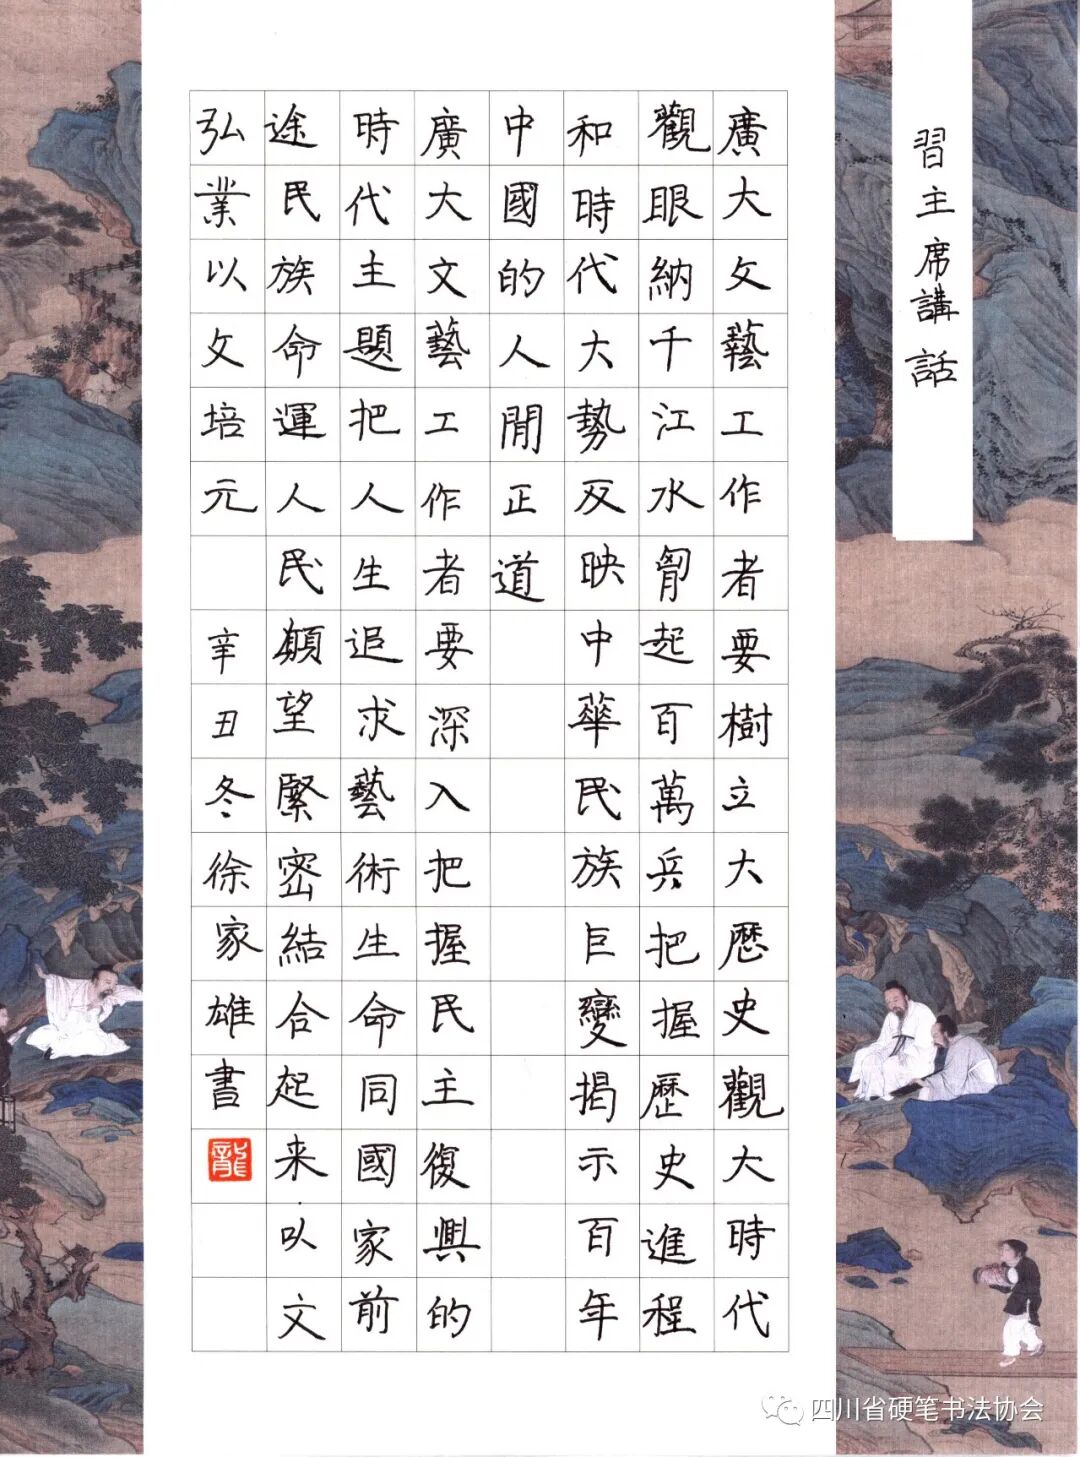 習主席講話
廣大文藝工作者要樹立大歷史觀大時代
觀眼納千江水胷起百萬兵把握歷史進程
和時代大勢反映中華民族巨變揭示百年
中國的人閒正道
廣大文藝工作者要深入把握民主復興的
時代主題把人生追求藝術生命同國家前
途民族命運人民願望緊密結合起来以文
弘業以文培元 辛丑冬徐家雄書
龍
四川省硬笔书法协会